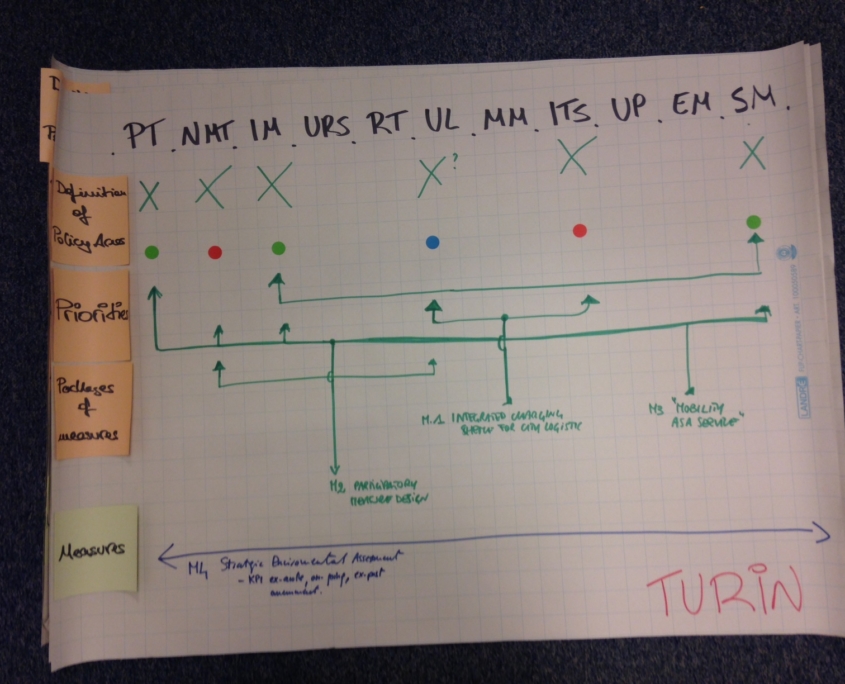 PT. NMT. IM. URS. RT. UL. MM. ITS. UP. EM. SM.
Definition
of
Policy Areas
X X X X? X X
Priorities
Packages
of
measures
M.1. INTEGRATED CHARGING
FOR CITY LOGISTIC
M3 "MOBILITY
AS A SERVICE"
M2 PARTICIPATORY
MEASURE DESIGN
Measures
M4 Strategic Environmental Assessment
- KPI ex-ante, ex-post
TURIN
LANDRÉ